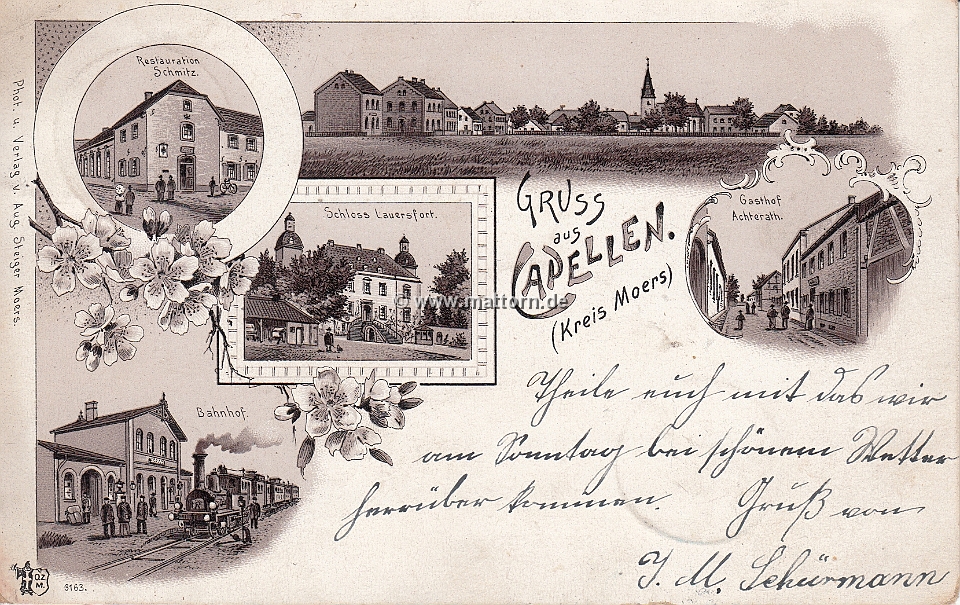 Restauration
Schmitz.
Schloss Lauersfort.
GRUSS
aus
CAPELLEN.
(Kreis Moers)
Gasthof
Achterath.
© www.mattorn.de
Bahnhof.
Theile euch mit das wir
am Sonntag bei schönem Wetter
herrüber kommen. Gruß von
J. M. Schürmann
Phot. u. Verlag v. Aug. Steiger Moers.
D.Z.
M.
9163.